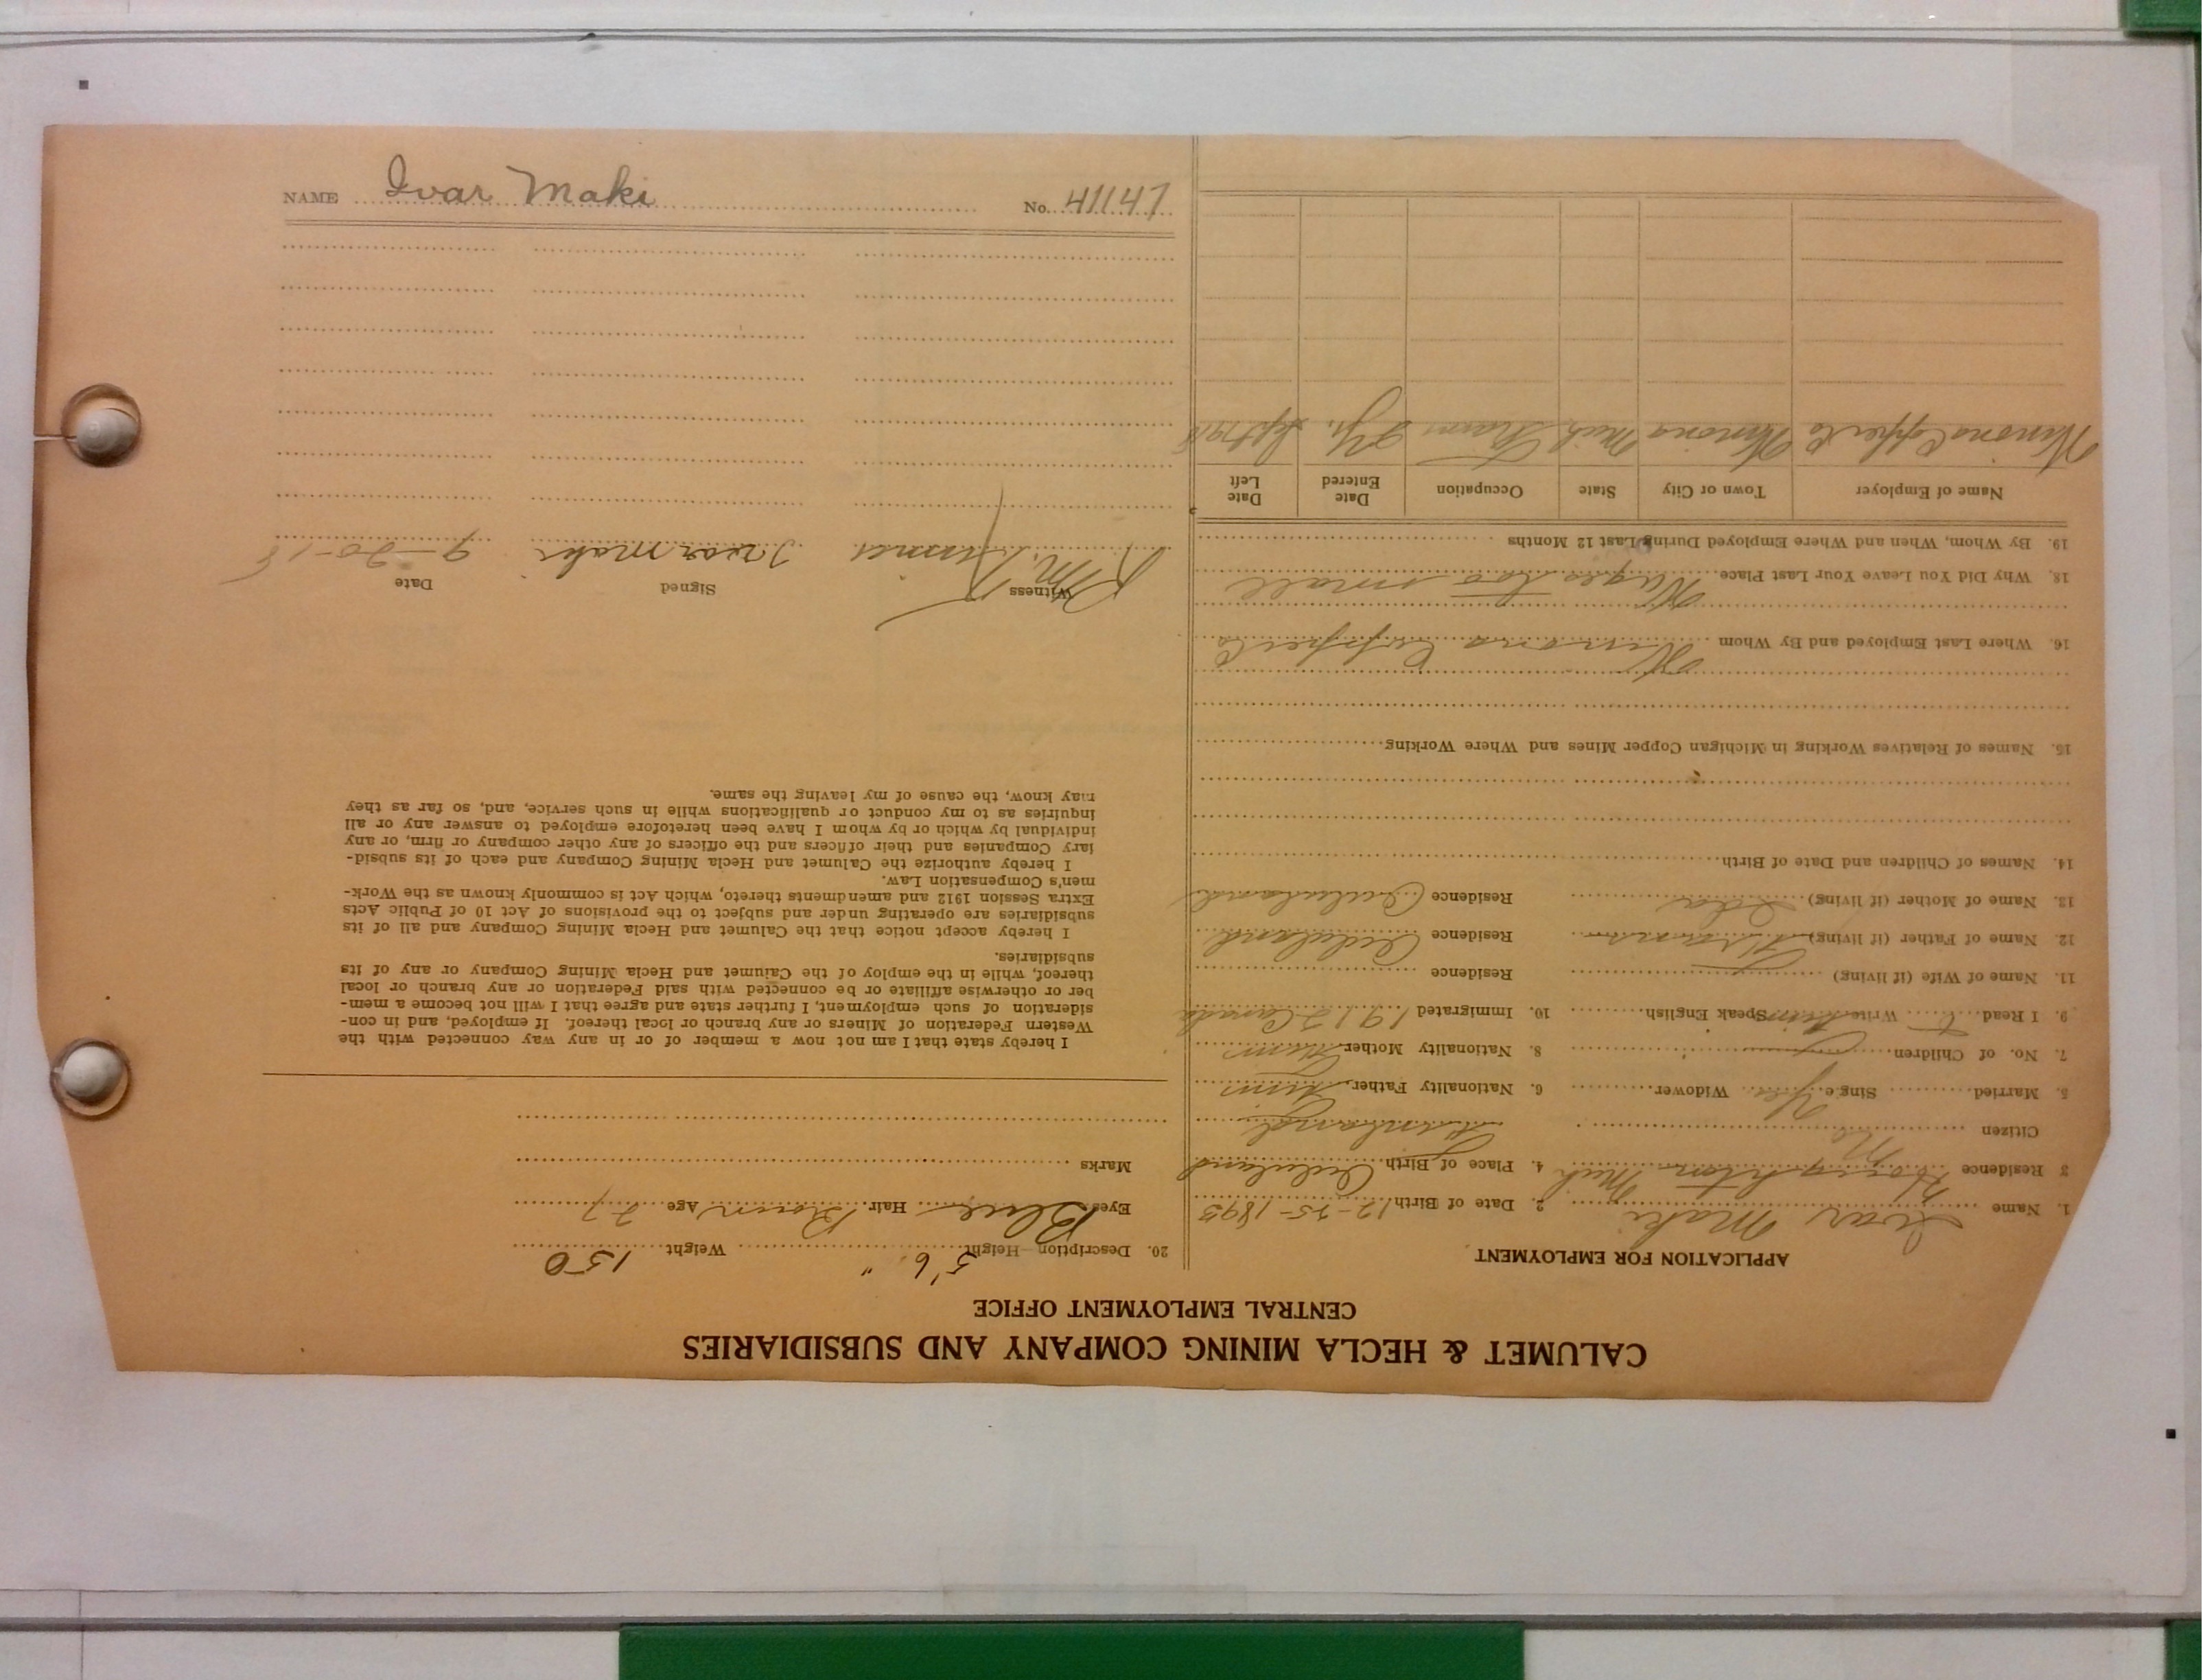 NAME Ivar Maki No. 41147
CALUMET & HECLA MINING COMPANY AND SUBSIDIARIES
CENTRAL EMPLOYMENT OFFICE
APPLICATION FOR EMPLOYMENT
1. Name Ivar Maki 2. Date of Birth 12-25-1893
3 Residence Houghton Mich 4. Place of Birth
Citizen No Finland
5. Married Single Yes Widower 6. Nationality Father Finn
7. No. of Children 8. Nationality Mother Finn
9. I Read Write Finn Speak English 10. Immigrated 1913 Canada
11. Name of Wife (if living) Residence
12. Name of Father (if living) Residence
13. Name of Mother (if living) Ida Residence
14. Names of Children and Date of Birth
15. Names of Relatives Working in Michigan Copper Mines and Where Working
16. Where Last Employed and By Whom
Winona Copper Co
18. Why Did You Leave Your Last Place Wages too small
19. By Whom, When and Where Employed During Last 12 Months
Name of Employer Town or City State Occupation Date Entered Date Left
Winona Copper Co Winona Mich Tram 2 Yr. Sept 1918
20. Description—Height 5'6" Weight 150
Eyes Blue Hair Brown Age 27
Marks
I hereby state that I am not now a member of or in any way connected with the
Western Federation of Miners or any branch or local thereof. If employed, and in con-
sideration of such employment, I further state and agree that I will not become a mem-
ber or otherwise affiliate or be connected with said Federation or any branch or local
thereof, while in the employ of the Calumet and Hecla Mining Company or any of its
subsidiaries.
I hereby accept notice that the Calumet and Hecla Mining Company and all of its
subsidiaries are operating under and subject to the provisions of Act 10 of Public Acts
Extra Session 1912 and amendments thereto, which Act is commonly known as the Work-
men's Compensation Law.
I hereby authorize the Calumet and Hecla Mining Company and each of its subsid-
iary Companies and their officers and the officers of any other company or firm, or any
individual by which or by whom I have been heretofore employed to answer any or all
inquiries as to my conduct or qualifications while in such service, and, so far as they
may know, the cause of my leaving the same.
Witness Signed Date
Ivar Maki 9-20-18